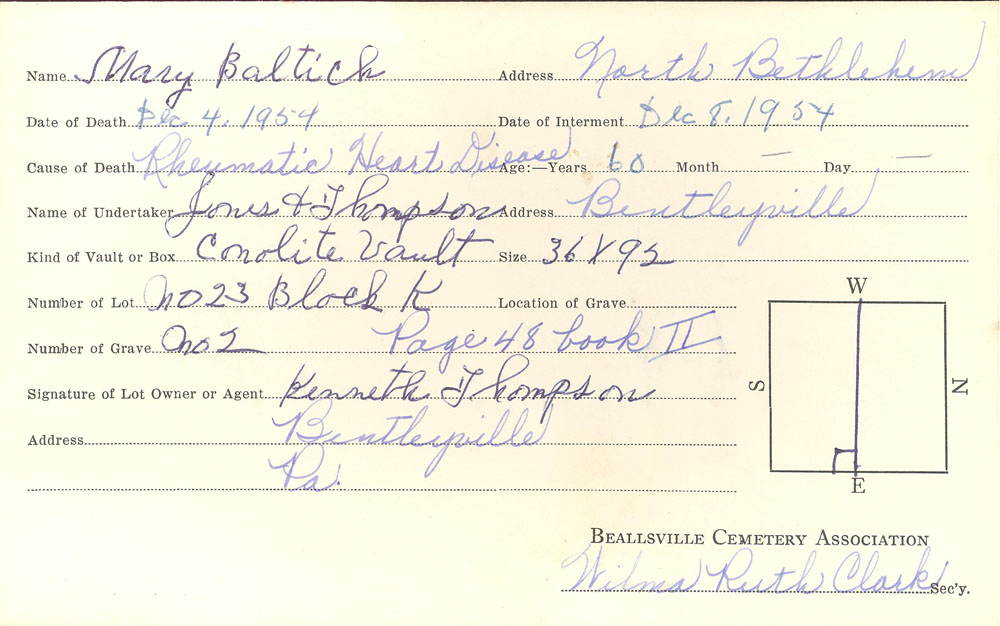 Name Mary Baltich Address North Bethlehem
Date of Death Dec 4, 1954 Date of Interment Dec 8, 1954
Cause of Death Rheumatic Heart Disease Age:—Years 60 Month — Day —
Name of Undertaker Jones & Thompson Address Bentleyville
Kind of Vault or Box Conolite Vault Size 36 X 92
Number of Lot No 23 Block K Location of Grave
W
Number of Grave No 2 Page 48 book II
S N
Signature of Lot Owner or Agent Kenneth Thompson
Address Bentleyville
Pa.
E
Beallsville Cemetery Association
Wilma Ruth Clark Sec'y.